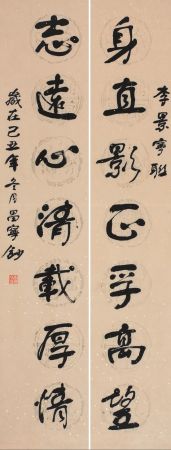 李景寧聯
身直影正孚高望
志遠心清載厚情
歲在己丑年冬月昌寧鈔